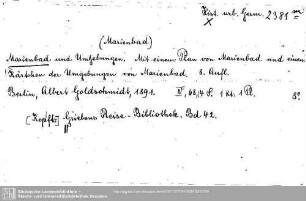 Hist. urb. Germ. 2381 m
X
(Marienbad)
Marienbad und Umgebungen. Mit einem Plan von Marienbad und einem
Kärtchen der Umgebungen von Marienbad. 8. Aufl.
Berlin, Albert Goldschmidt, 1891. IV, 68, 4 S. 1 Kt. 1 Pl. 8°
[Kopft.] Griebens Reise-Bibliothek. Bd 42.
Sächsische Landesbibliothek -
Staats- und Universitätsbibliothek Dresden